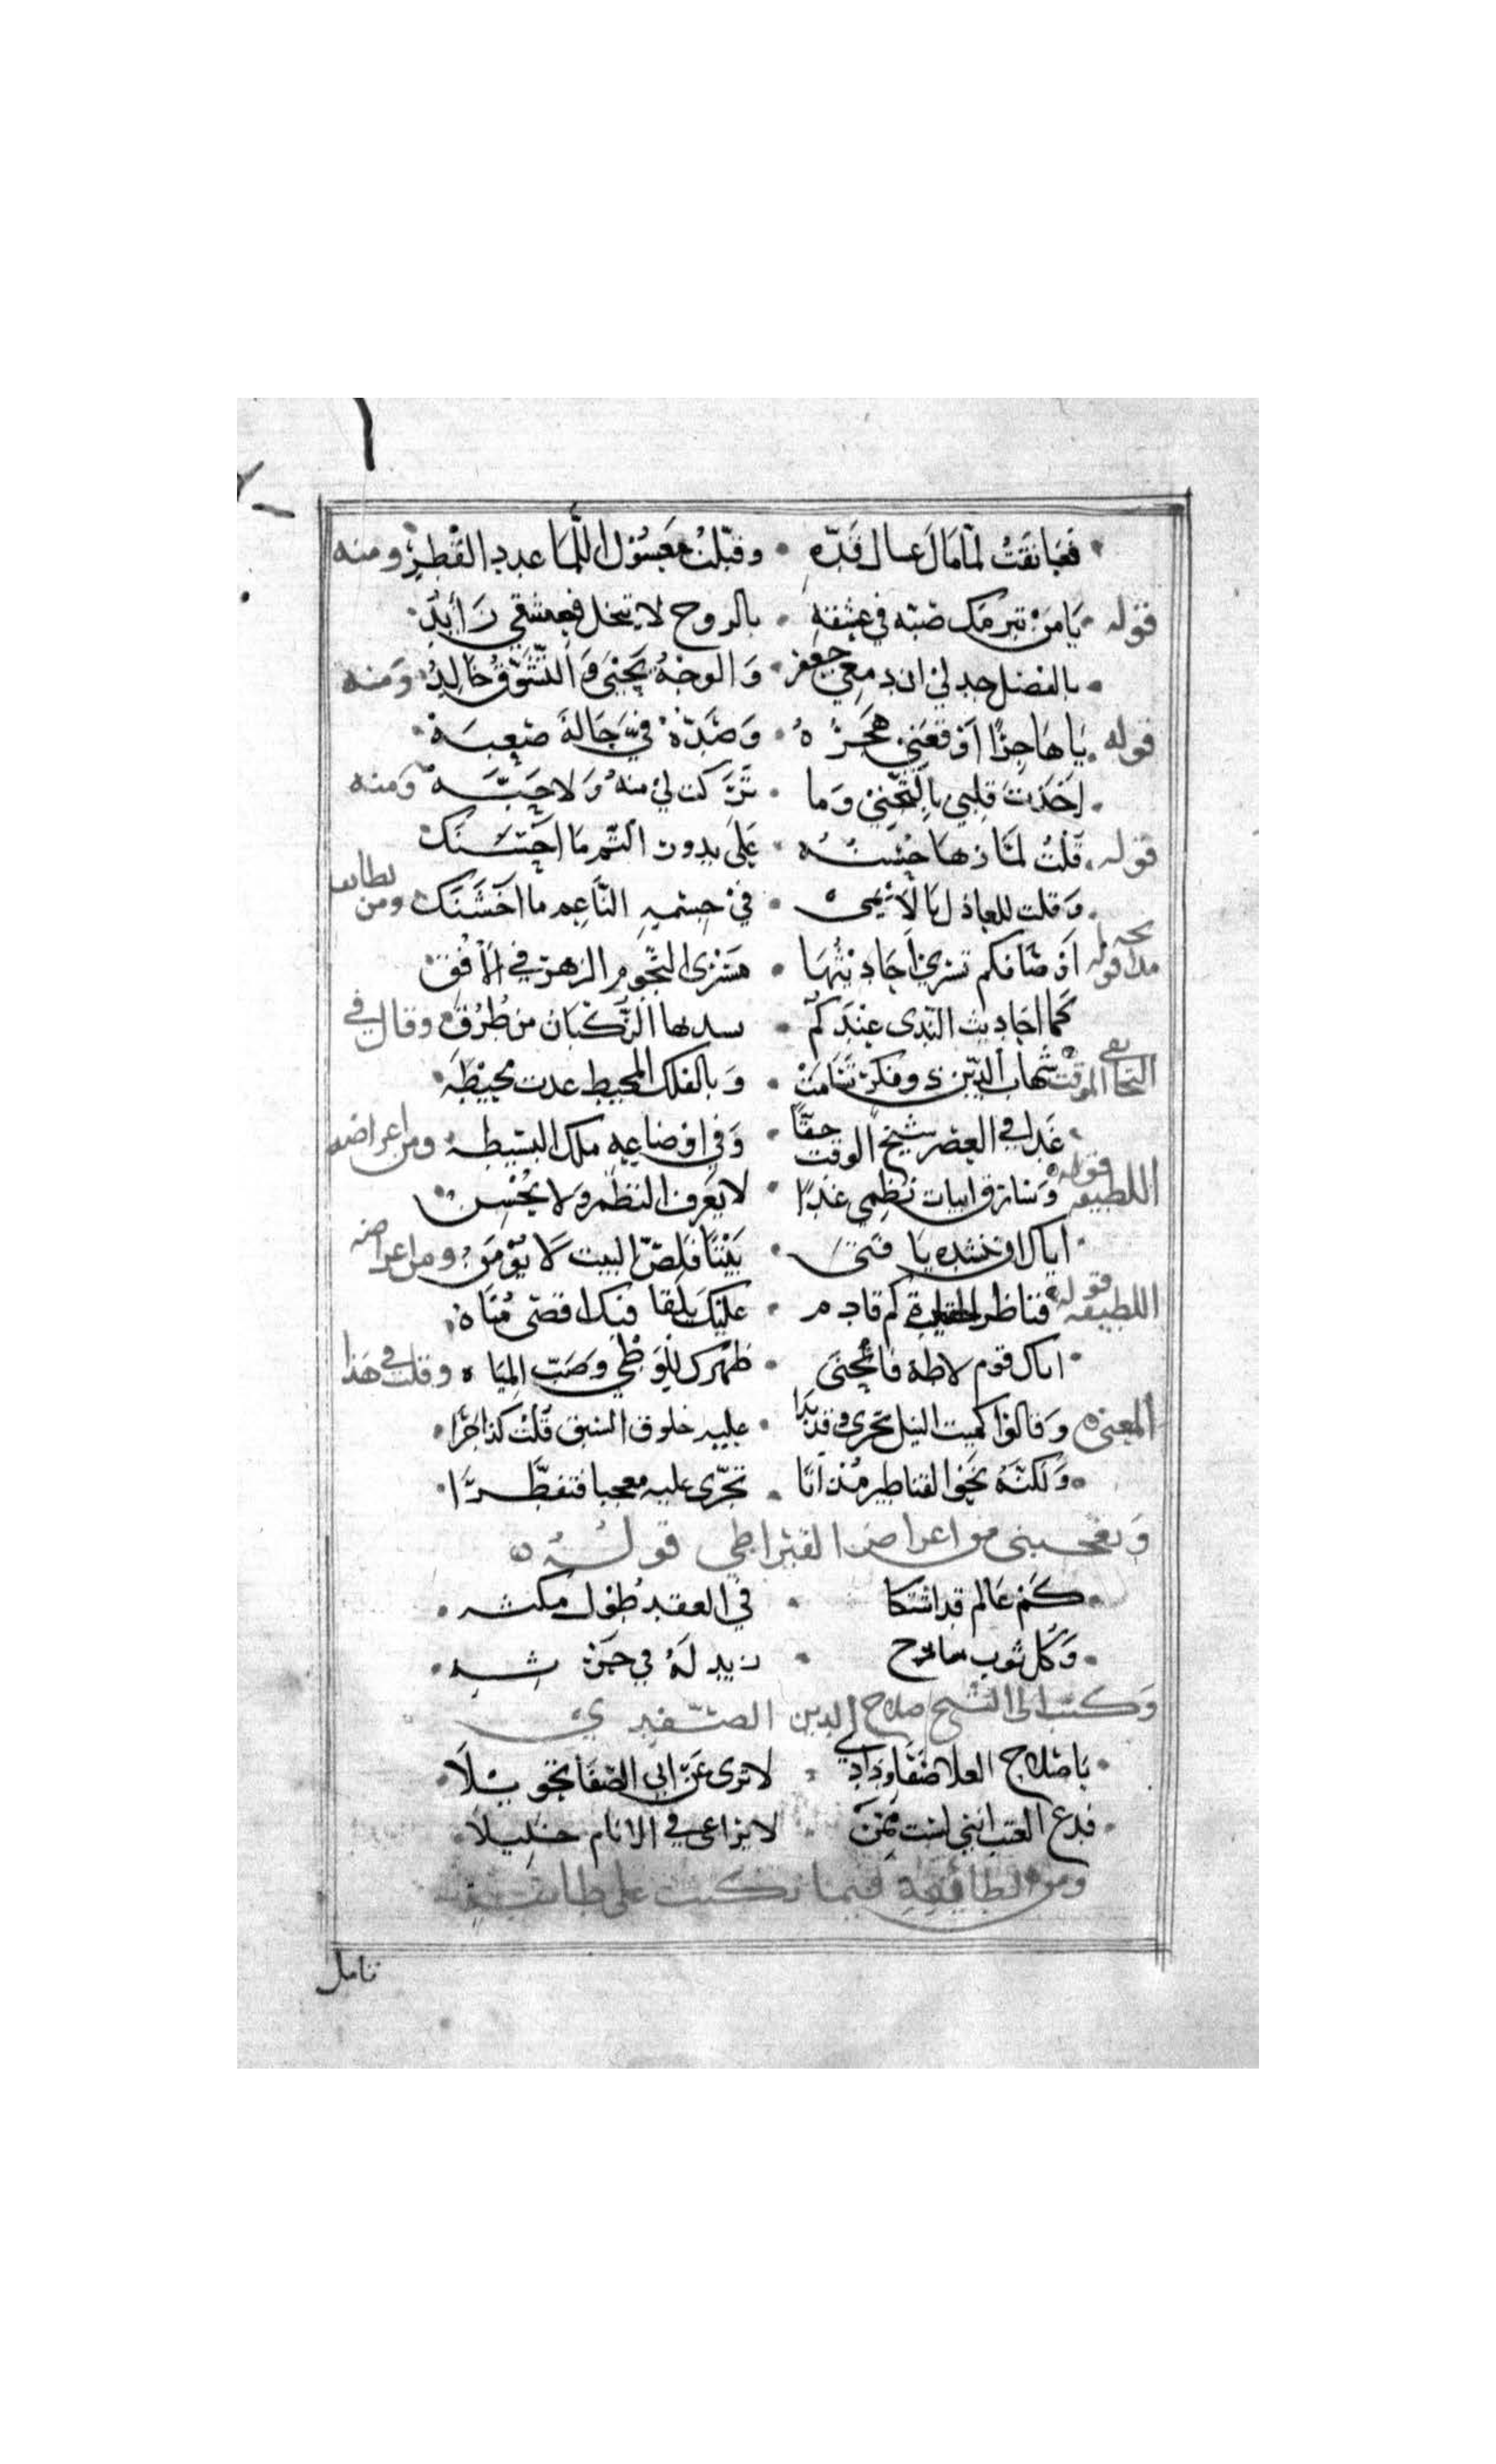 فعانقت لما مال عسال قده • وقبلت معسول اللما عدد القطر ومنه
قوله • يا من تبرمك صبه في عشقه • بالروح لا تبخل فعشقي زايد
• بالفضل جد لي ان دمعي جعفر • والوجه يحيى والتشوق خالد ومنه
قوله • يا هاجرا اوقعني هجره • وصده في حالة صعبه
• اخذت قلبي بالتجني وما • تركت لي منه ولا حبه ومنه
قوله • قلت لما زها حسنه • على بدور التم ما احسنك
• وقلت للعاذل يا لائمي • في جسمه الناعم ما اخشنك ومن لطايف
مدايحه قوله اوصافكم تسري احاديثها • مسرى النجوم الزهر في الافق
كما احاديث الندى عندكم • يسندها الركبان من طرق وقال في
الموقت شهاب الدين ذو فكر تسامت • وبالفلك المحيط غدت محيطه
• غدا في العصر شيخ الوقت حقا • وفي اوضاعه ملك البسيطه ومن اعراضه
اللطيفه قوله وسارق ابيات نظمي غدا • لا يعرف النظم ولا يحسن
• اياك ان تنشده يا فتى • بيتا فلص البيت لا يؤمن ومن اعراضه
اللطيفه قوله قناطر الجيزة كم قادم • عليك يلقا فيك اقصى مناه
• اتاك قوم لاطة فانحنى • ظهرك للوطي وصب المياه وقلت في هذا
المعنى وقالوا كميت النيل تجري وقد بدا • عليه خلوق السبق قلت كذا جرا
• ولكنه نحو القناطير مذ اتا • تجرى عليه معجبا فتقطرا
ويعجبني من اعراض القيراطي قوله
• كم عالم قد اشتكا • في العقد طول مكثه
• وكل ثوب سارح • زيد له في حرثه
وكتب الى الشيخ صلاح الدين الصفدي
• يا صلاح العلا صفا ودادي • لا ترى عن ابي الصفا تحويلا
• فدع العتب انني لست ممن • لا يراعي في الانام خليلا
ومن لطايفه فيما تكتب على طاسة
تامل